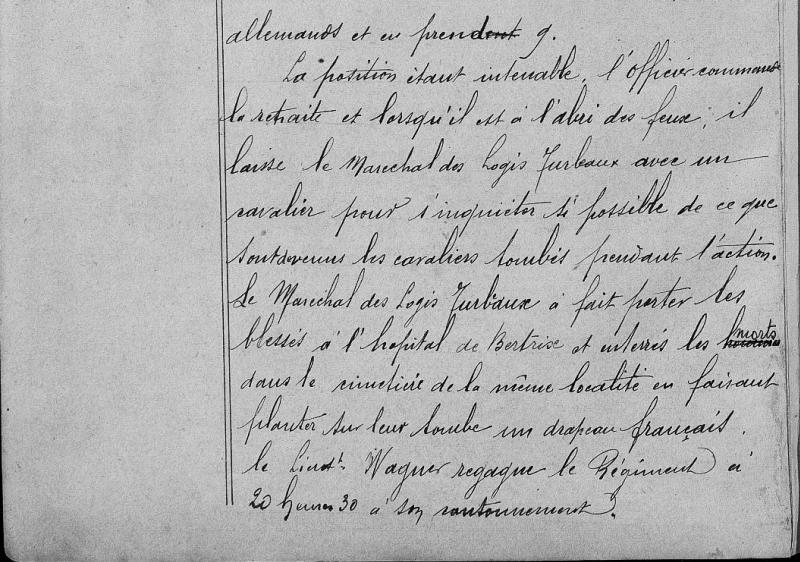 allemands et en prendront 9.
La position étant intenable, l'officier commande
la retraite et lorsqu'il est à l'abri des feux, il
laisse le Marechal des Logis Jurbaux avec un
cavalier pour s'inquiéter si possible de ce que
sont devenus les cavaliers tombés pendant l'action.
Le Marechal des Logis Jurbaux à fait porter les
blessés à l'hopital de Bertrix et interrés les morts
dans le cimetière de la même localité en faisant
planter sur leur tombe un drapeau français.
le Lieut. Wagner regagne le Régiment à
20 heures 30 à son cantonnement.